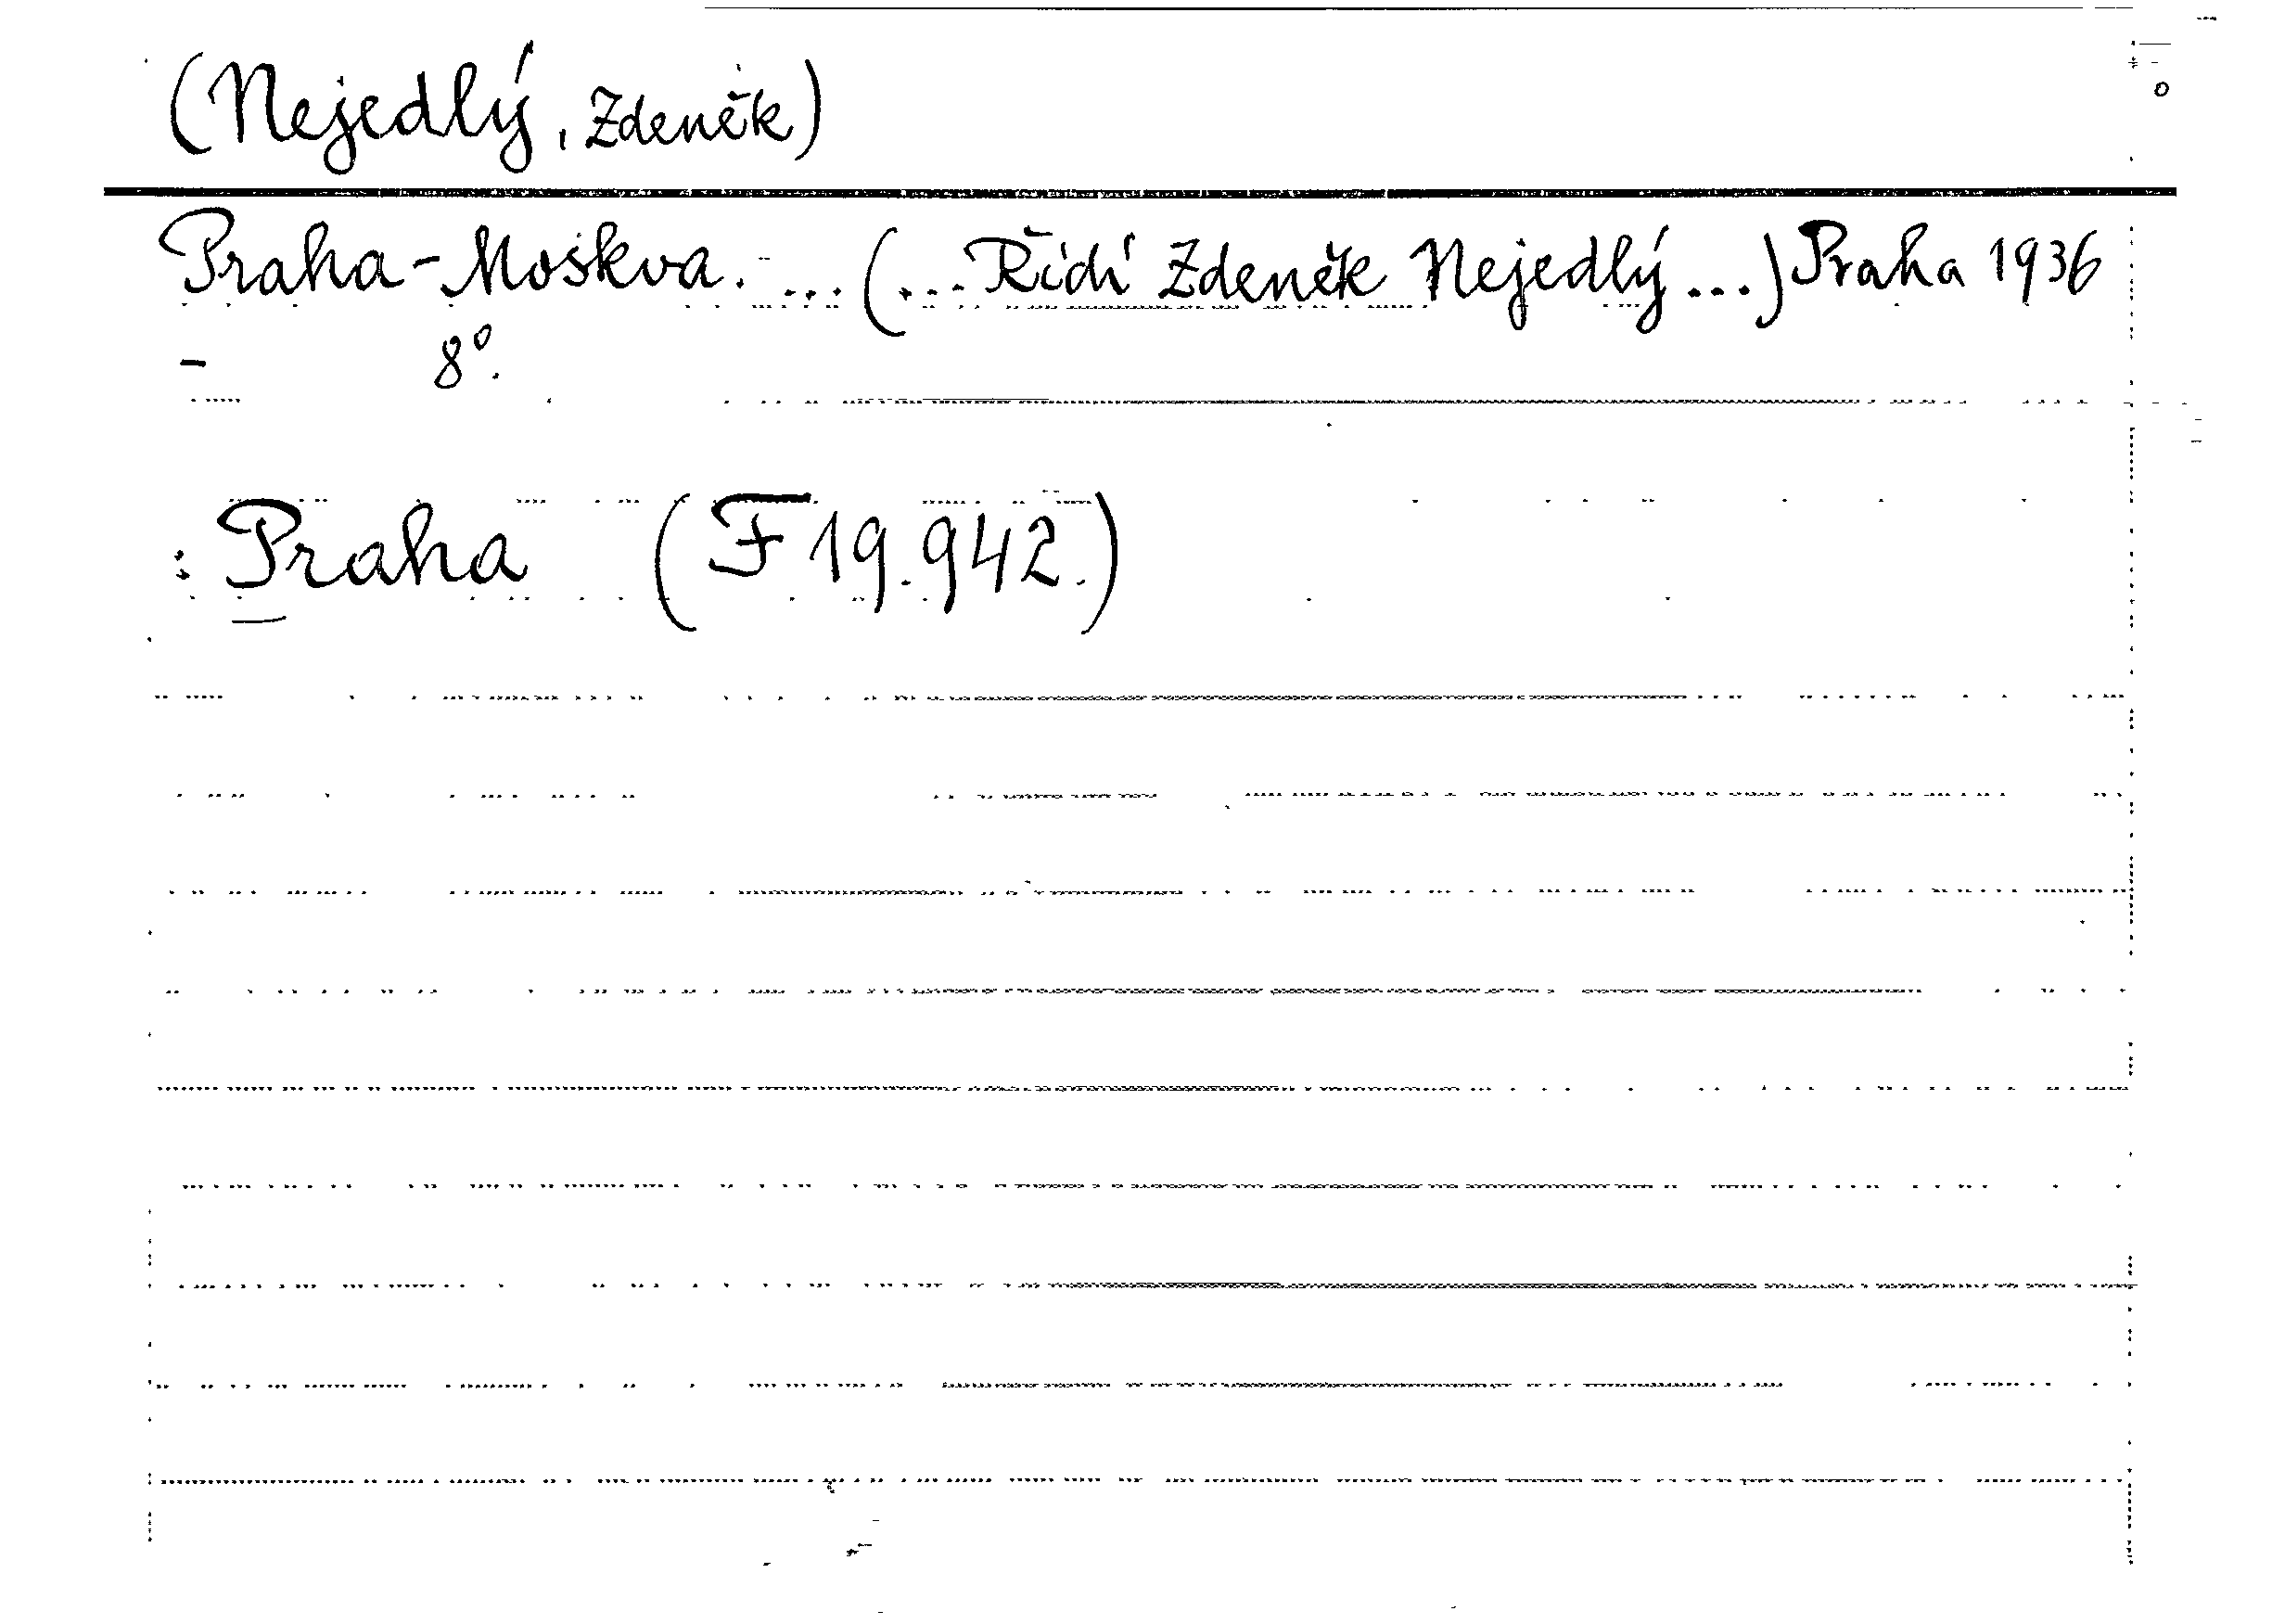 (Nejedlý, Zdeněk)
Praha-Moskva. ... (... Řídí Zdeněk Nejedlý ...) Praha 1936
- 8°.
: Praha (F 19.942.)